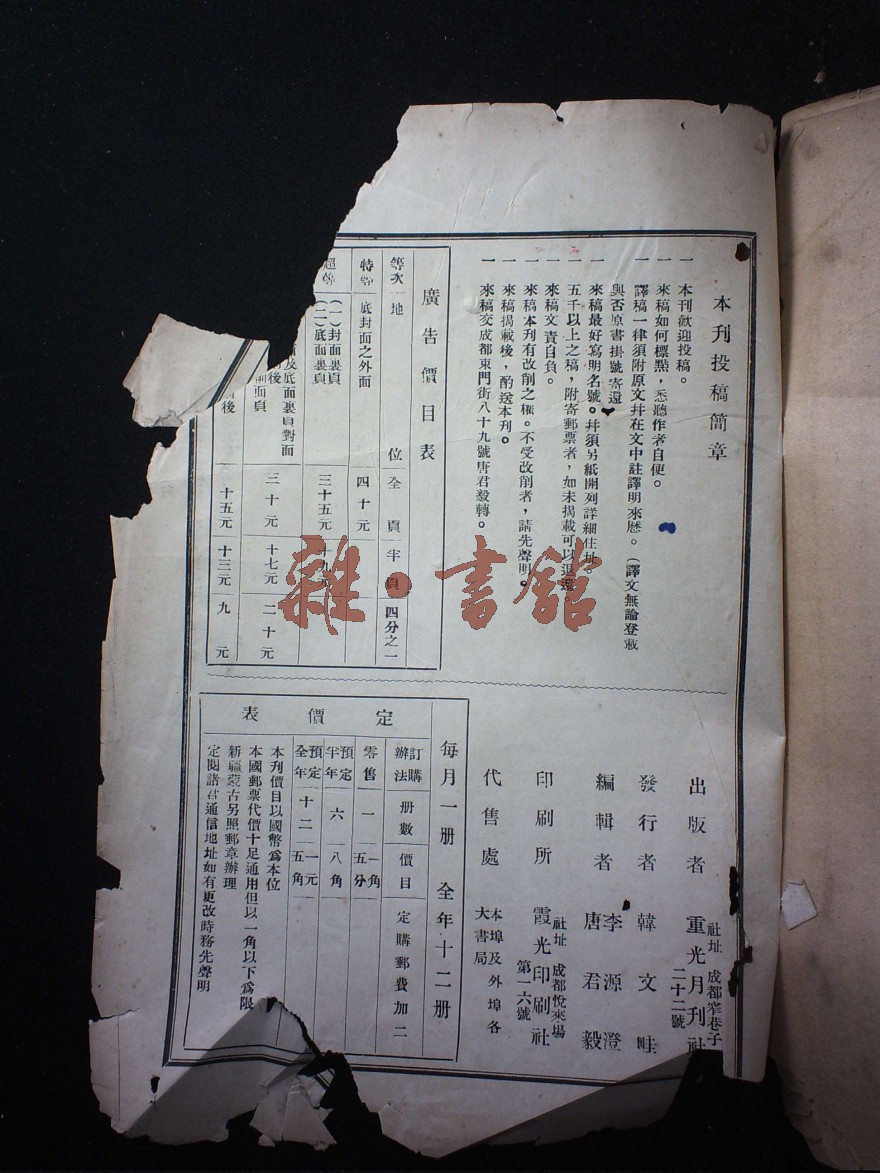 本刊投稿簡章
一　本刊歡迎投稿。
一　來稿如何標點，悉聽作者自便。
一　譯稿一律須附原文幷在文中註譯明來歷。（譯文無論登載
與否原書掛號寄還
一　來稿最好寫明名號。幷須另紙開列詳細住址。
一　五千以上之稿，附寄郵票者，如未揭載可以退還。
一　來稿文責自負。
一　來稿本刊有改削之權。不受改削者，請先聲明。
一　來稿揭載後，酌送本刊。
一　來稿交成都東門街八十九號唐君毅轉。
廣告價目表
等次　地位　全頁　半頁　四分之一
特等　底封面之外面　四十元
超等　（一）封面裏頁
（二）底面裏頁　三十五元　十九元
及底面裏頁對面
後
前面頁　三十元　十七元　二十元
後　十五元　十三元　九元
出版者　重光月刊社
社址　成都窄巷子
二十二號
發行者　韓文畦
編輯者　李源澄
唐君毅
印刷所　霞光印刷社
社址　成都悅來場
第一六號
代售處　本埠及外埠各
大書局
每月一册　全年十二册
定價表
訂購辦法　册數　價目　定購郵費加二
零售　一　一角五分
預定半年　六　八角
預定全年　十二　一元五角
本刊價目以國幣爲本位
本國郵票代價十足通用但以一角以下爲限
新疆蒙古另照郵章辦理
定閱諸君通信地址如有更改時務先聲明
雜·書館